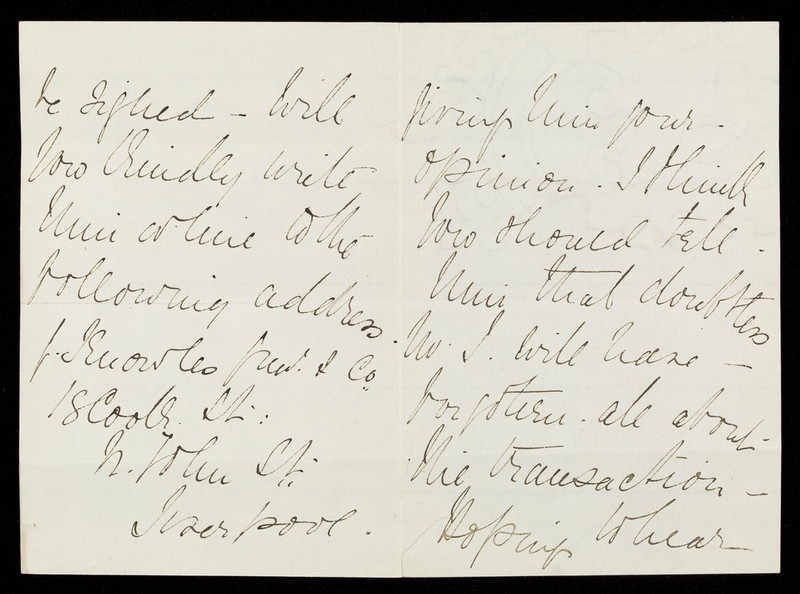 be signed - Will
you kindly write
him a line to the
following address.
J. Knowles Junr. & Co
18 Cook St:
N. John St:
Liverpool.
giving him your
opinion. I think
you should tell
him that doubtless
Mr. I. will have -
forgotten all about
the transaction -
Hoping to hear